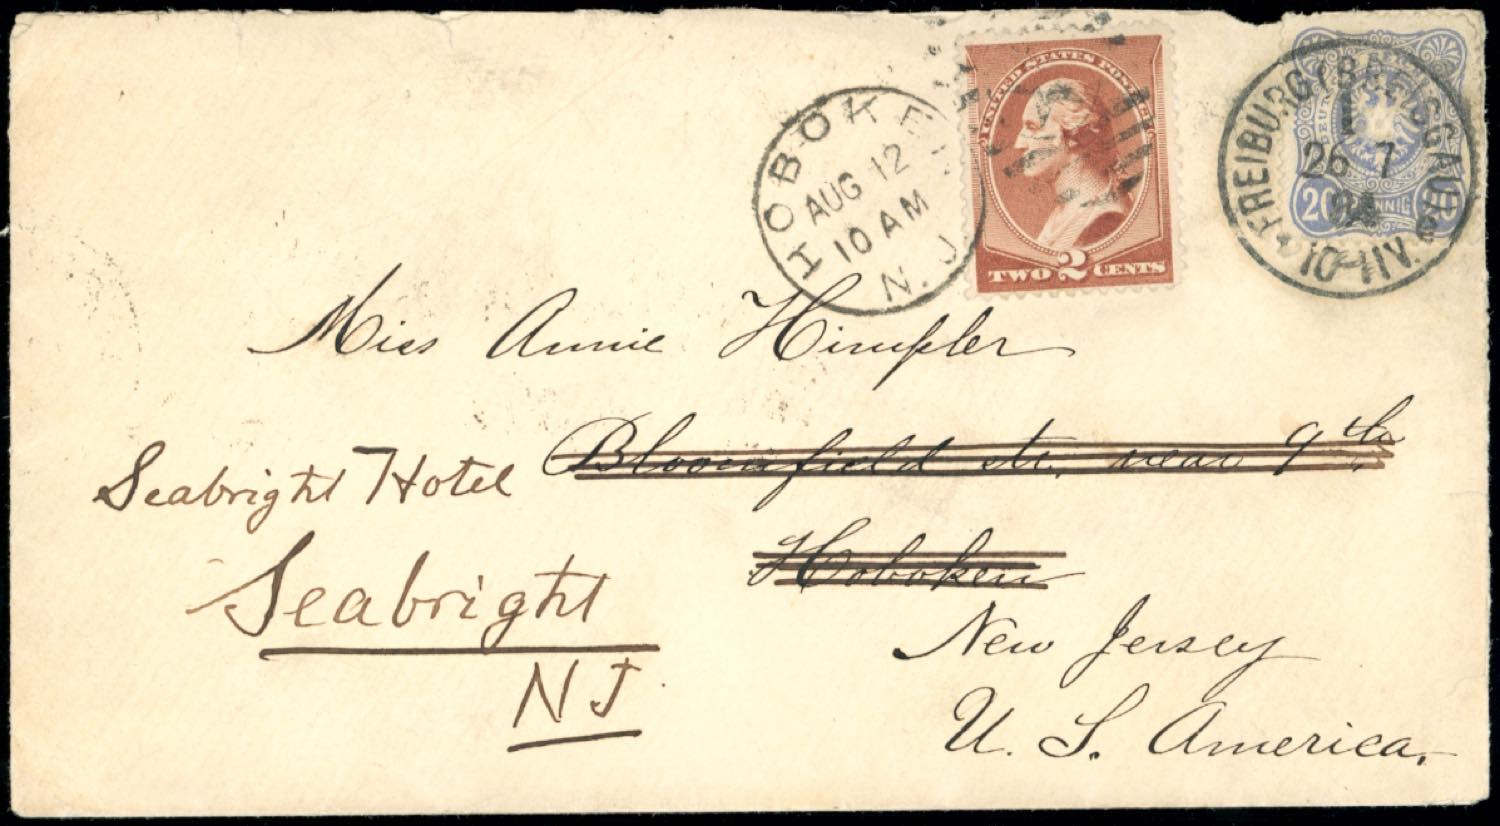 HOBOKEN
AUG 12
10 AM
N. J.
UNITED STATES POSTAGE
TWO 2 CENTS
FREIBURG (BREISGAU)
1
26 7
84
10-11V.
20 PFENNIG
Miss Annie Himpler
Bloomfield str. near 9th
Hoboken
New Jersey
U. S. America.
Seabright Hotel
Seabright
N J.